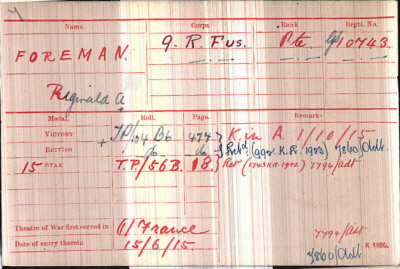 Name. Corps. Rank Regtl. No.
FOREMAN. 9. R. Fus. Pte 10743.
Reginald A
Medal. Roll. Page. Remarks.
VICTORY TP/104 B6 474 K. in A. 1/10/15
BRITISH do do Retd. (992 K.R. 1923) 7860/Adt.
15 STAR T.P./56B. 18. Ret (1743 K.R. 1922) 7794/Adt
Theatre of War first served in (1) France
Date of entry therein 15/6/15.
7794/Adt
K. 1380.
7860/Adt.